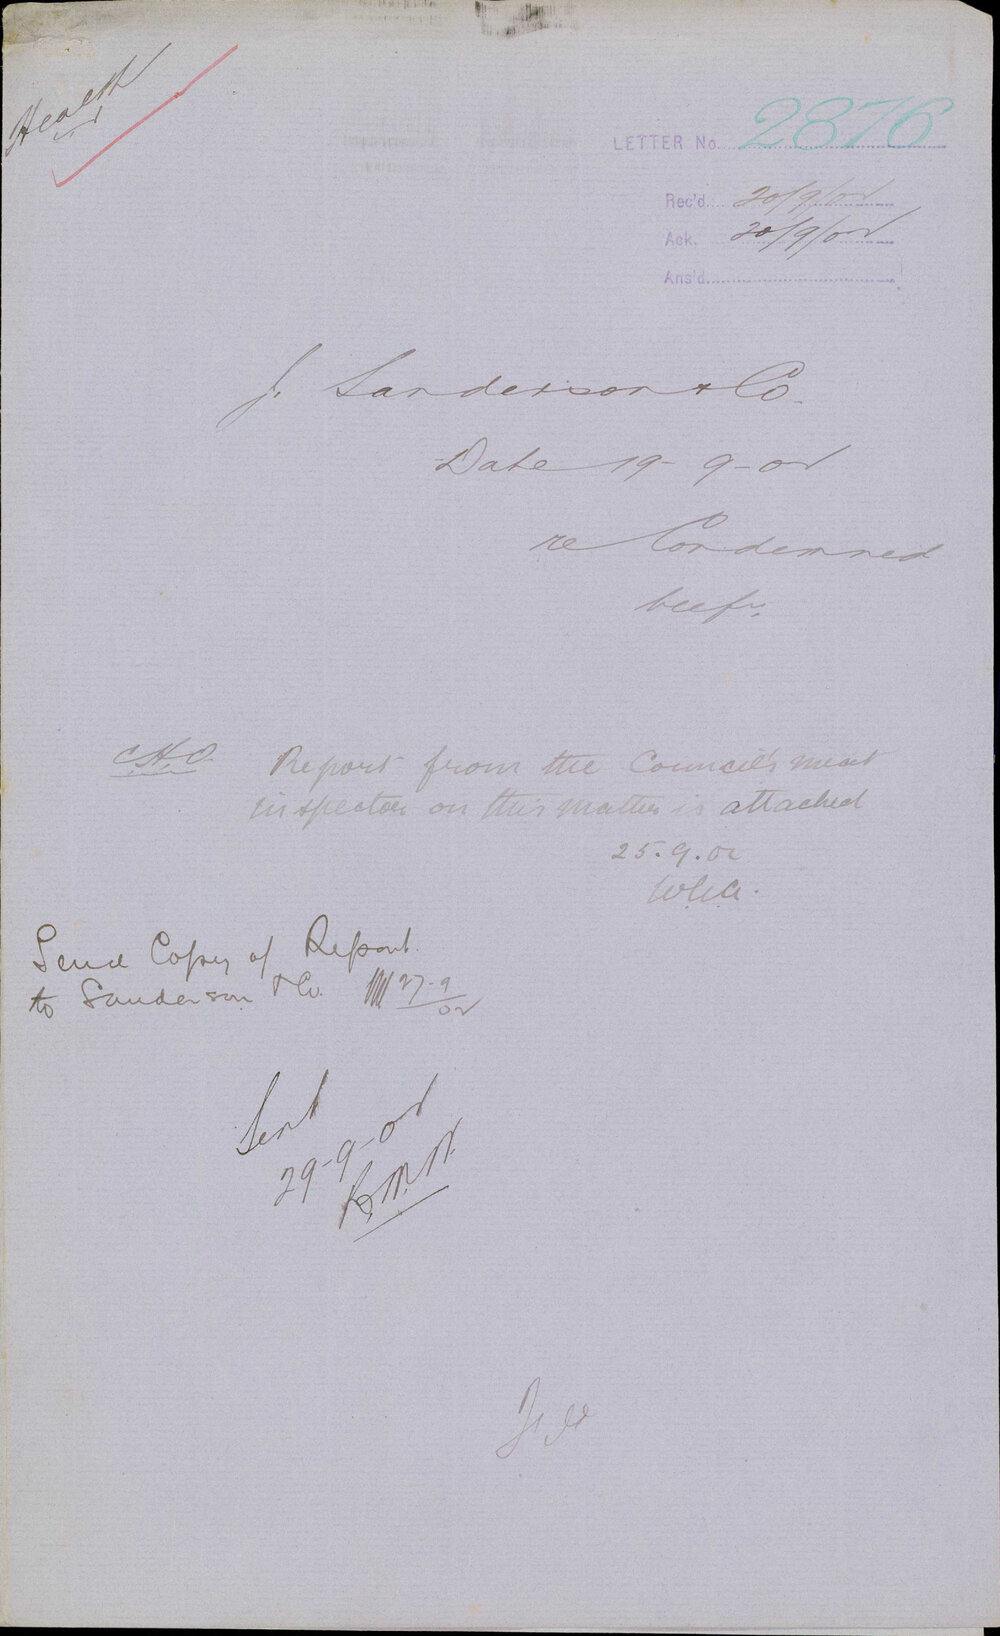 Health
LETTER No. 2876
Rec'd. 20/9/02
Ack. 20/9/02
Ans'd.
J. Sanderson & Co.
Date 19-9-02
re Condemned
beef.
C.H.O. Report from the Council's meat
inspector on this matter is attached
25.9.02
Send Copy of Report
to Sanderson & Co. 27-9/02
Sent
29-9-02
File